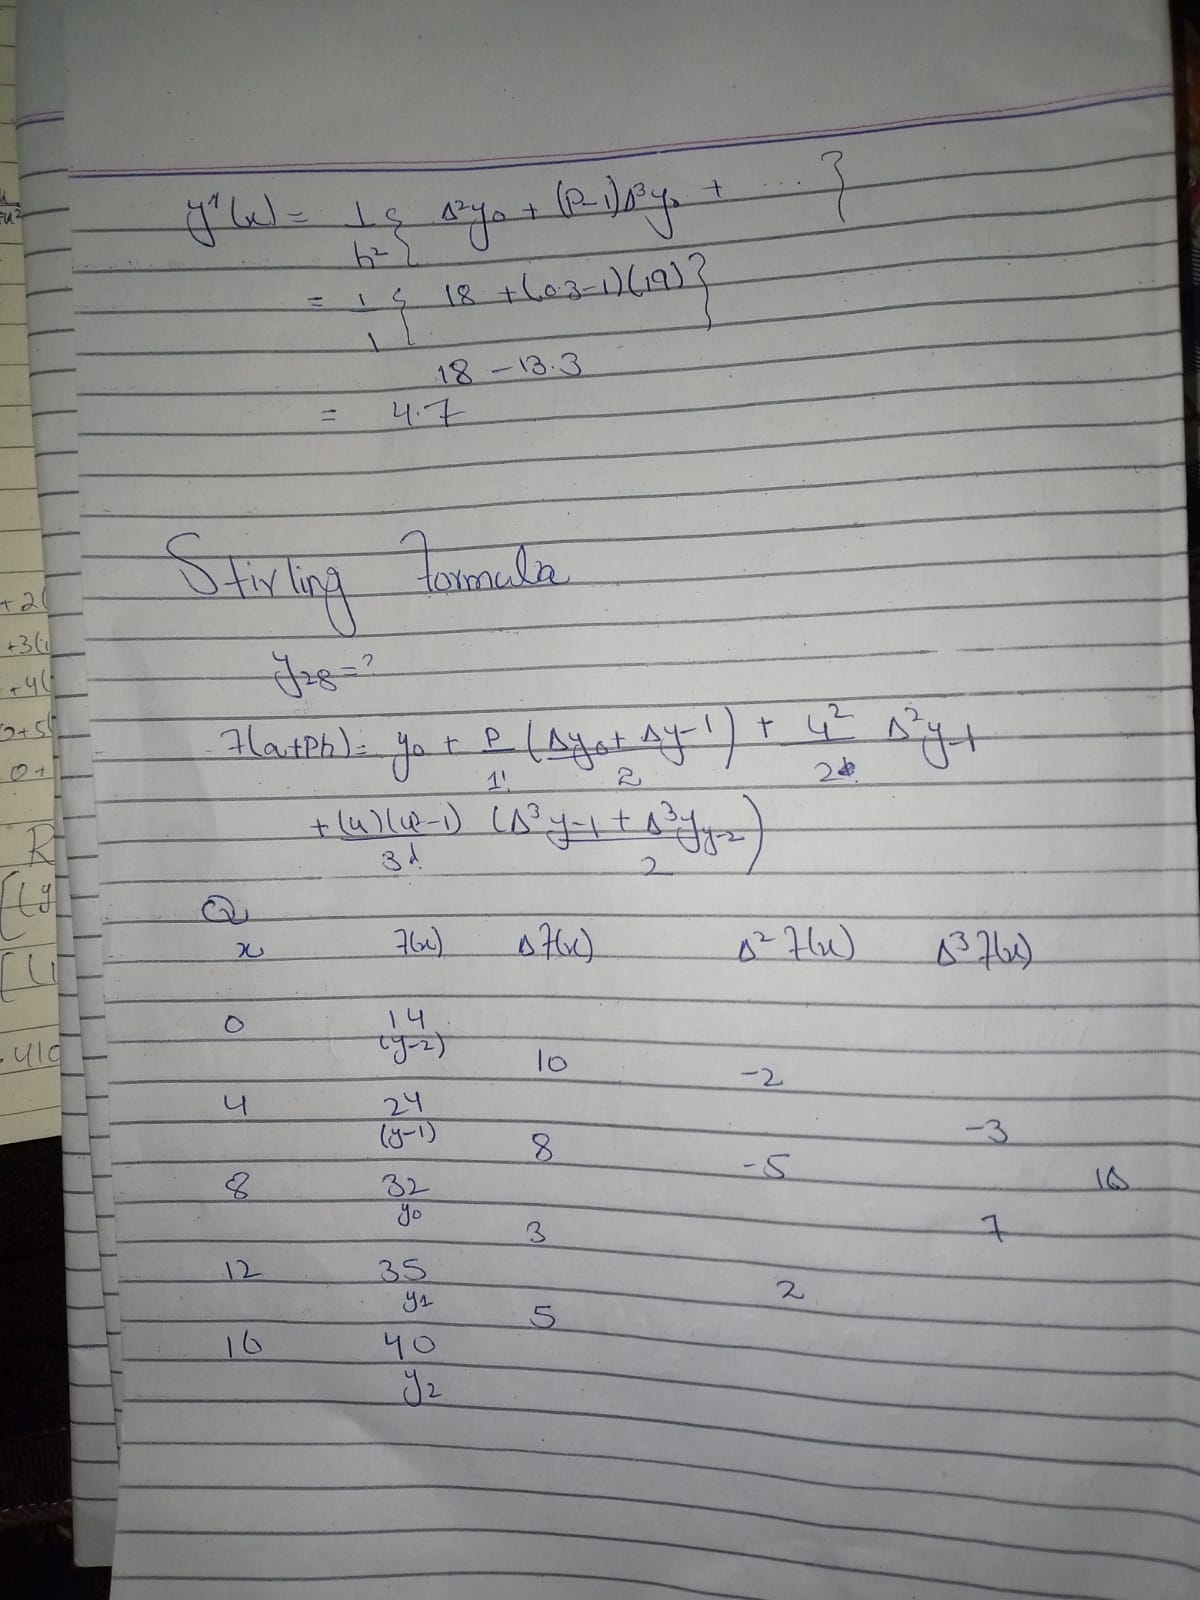 y''(x) = 1/h² { Δ²y₀ + (P-1)Δ³y₀ + .... }
= 1/1 { 18 + (0.3-1)(19) }
18 - 13.3
= 4.7
Stirling Formula
y₂₈ = ?
f(a+Ph) = y₀ + P/1! (Δy₀ + Δy-1)/2 + u²/2! Δ²y-1
+ (u)(u²-1)/3! (Δ³y-1 + Δ³y-2)/2
Q
x f(x) Δf(x) Δ²f(x) Δ³f(x)
0 14
(y-2)
10 -2
4 24
(y-1) -3
8 -5
8 32 10
y₀ 3 7
12 35
y₁ 2
5
16 40
y₂
+2(
+3(
+4(
2+5(
0+
R
[(y
[(